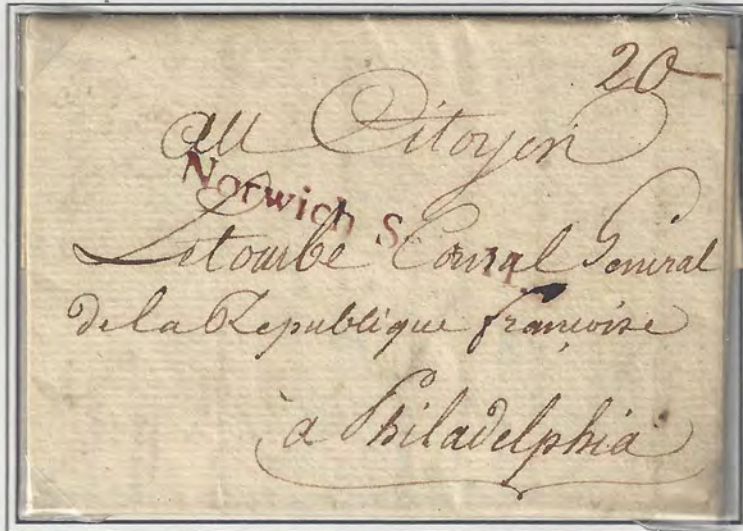 20
au Citoyen
Norwich Se 14
Letombe Consul General
de la Republique françoise
a Philadelphia